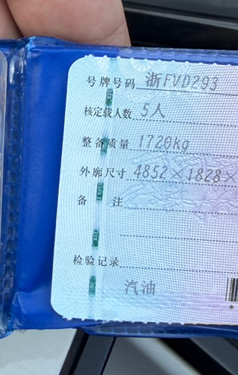 号牌号码 浙FVD293
核定载人数 5人
整备质量 1720kg
外廓尺寸 4852×1828×
备 注
检验记录
汽油